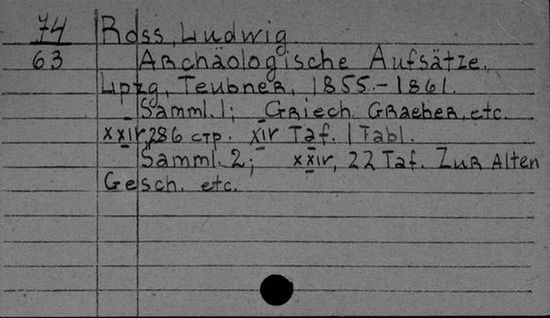 74 Ross, Ludwig
63 Archäologische Aufsätze.
Lpzg, Teubner, 1855.-1861.
Samml. 1; Griech. Graeber, etc.
xxiv, 286 стр. xiv Taf. 1 Tabl.
Samml. 2; xxiv, 22 Taf. Zur Alten
Gesch. etc.